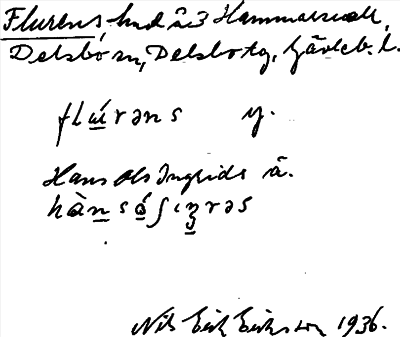 Flurens, hmd å 3 Hammarsvall,
Delsbo sn, Delsbo tg, Gävleb. l.
flúrəns y.
Hans Ols Ingrids å.
Nils Erik Eriksson 1936.